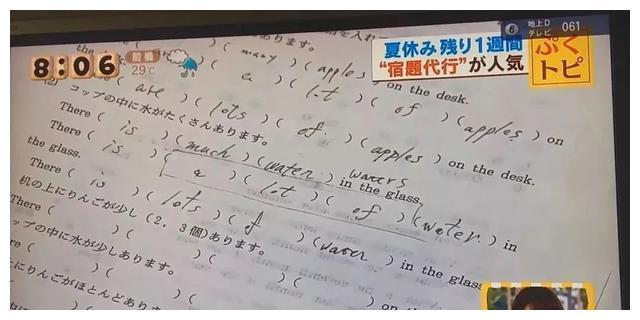 8:06
前橋
29℃
6
地上D
テレビ
061
夏休み 残り1週間
“宿題代行”が人気
ぷく
トピ
あります。
) ( many ) ( apples ) on the desk.
a ) ( lot ) ( of ) ( apples ) on
are ) ( lots ) ( of ) ( apples ) on the desk.
コップの中に水がたくさんあります。
There ( is ) ( much ) ( water ) in the glass.
waters
There ( is ) ( a ) ( lot ) ( of ) ( water ) in
the glass.
There ( is ) ( lots ) ( of ) ( water ) in the glass
机の上にりんごが少し(2, 3個)あります。
There ( ) ( ) (
ップの中に水が少しあります。
にりんごがほとんどありま